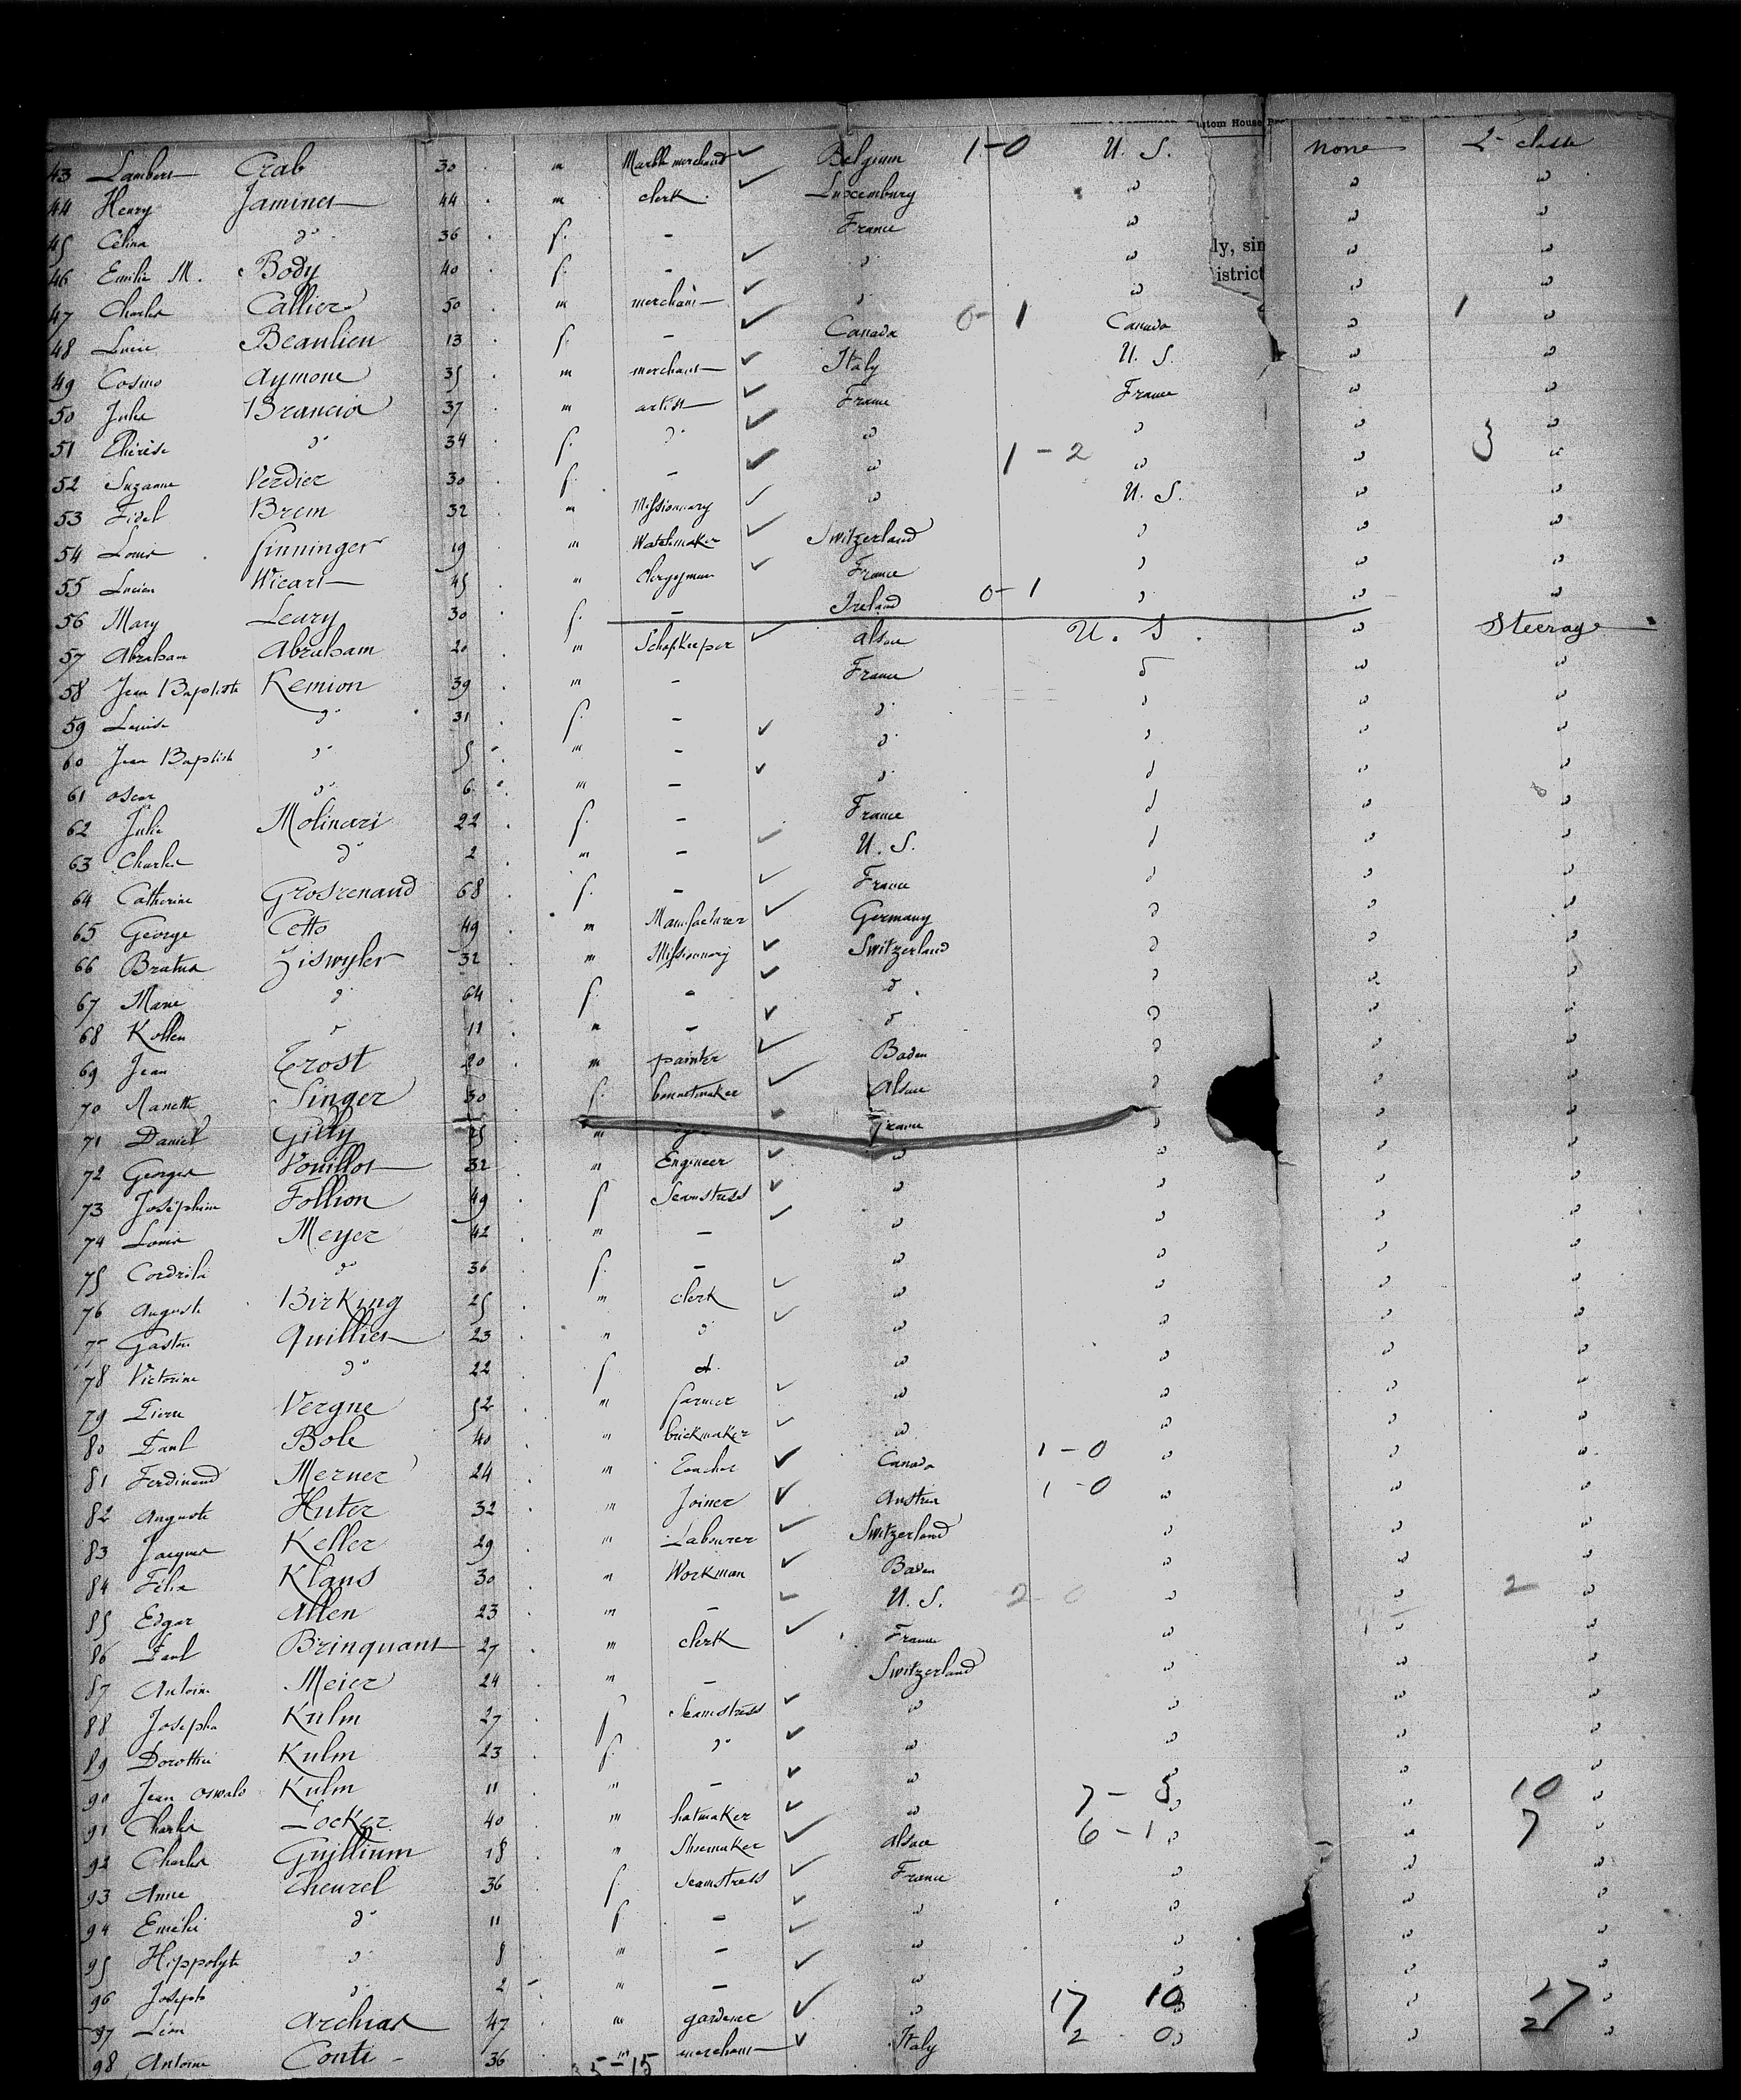 ustom House
43 Lambert Crab 30 m Marble merchant Belgium 1-0 U. S. none 2 classe
44 Henry Jaminet 44 m clerk Luxemburg " " "
45 Célina do 36 f. - France " " "
ly, sin
46 Emilie M. Body 40 f. - " " " "
istrict
47 Charles Callier 50 m merchant " " " "
48 Lucie Beaulieu 13 f. - Canada 0-1 Canada " 1 "
49 Cosmo Aymone 35 m merchant Italy U. S. " "
50 Jules Brancia 37 m artist France France " "
51 Thérèse do 34 f. do " " " "
52 Suzanne Verdier 30 f. - " 1-2 " " 3 "
53 Fidel Brem 32 m Missionnary " U. S. " "
54 Louis Sinninger 19 m Watchmaker Switzerland " " "
55 Lucien Wicart 45 m Clergyman France " " "
56 Mary Leary 30 f. - Ireland 0-1 " " "
57 Abraham Abraham 20 m Schopkeeper Alsace U. S. " Steerage
58 Jean Baptiste Remion 39 m - France do " "
59 Louise do 31 f. - do " " "
60 Jean Baptiste do 5 m - do " " "
61 Oscar do 6 m - do " " "
62 Julie Molinari 22 f. - France " " "
63 Charles do 2 m - U. S. " " "
64 Catherine Grosrenaud 68 f. - France " " "
65 George Cetto 49 m Manufacturer Germany " " "
66 Ziswyler 32 m Missionnary Switzerland " " "
67 Marie do 64 f. - do " " "
68 do 11 m - do " " "
69 Jean Trost 20 m painter Baden " " "
70 Nanette Singer 30 f. bonnetmaker Alsace " " "
71 Daniel Gilly 25 m France " " "
72 Georges Vouillot 32 m Engineer " " " "
73 Joséphine Follion 49 f Seamstress " " " "
74 Louis Meyer 42 m - " " " "
75 do 36 f. - " " " "
76 Auguste Birking 25 m clerk " " " "
77 Gaston Quillier 23 m do " " " "
78 Victorine do 22 f d. " " " "
79 Pierre Vergne 52 m farmer " " " "
80 Paul Bole 40 m brickmaker " " " "
81 Ferdinand Merner 24 m Teacher Canada 1-0 " " "
82 Auguste Huter 32 m Joiner Austria 1-0 " " "
83 Jacques Keller 29 m Labourer Switzerland " " "
84 Félix Klaus 30 m Workman Baden " " "
85 Edgar Allen 23 m - U. S. 2 0 " " 2 "
86 Paul Brinquant 27 m clerk France " " "
87 Antoine Meier 24 m - Switzerland " " "
88 Josepha Kulm 27 f Seamstress " " " "
89 Dorothée Kulm 23 f. do " " " "
90 Jean Oswald Kulm 11 m - " 7-3 " " 10 "
91 Charles Locker 40 m hatmaker " 6-1 " " 7 "
92 Charles Guillium 18 m Shoemaker Alsace " " "
93 Anne Cheurel 36 f. Seamstress France " " "
94 Emélie do 11 f - " " " "
95 Hippolyte do 8 m - " " " "
96 Joseph do 2 m - " " " "
97 Léon Archias 47 m gardener " 17 10 " " 27 "
98 Antoine Conti 36 m merchant Italy 2 0 " " 2 "
35-15